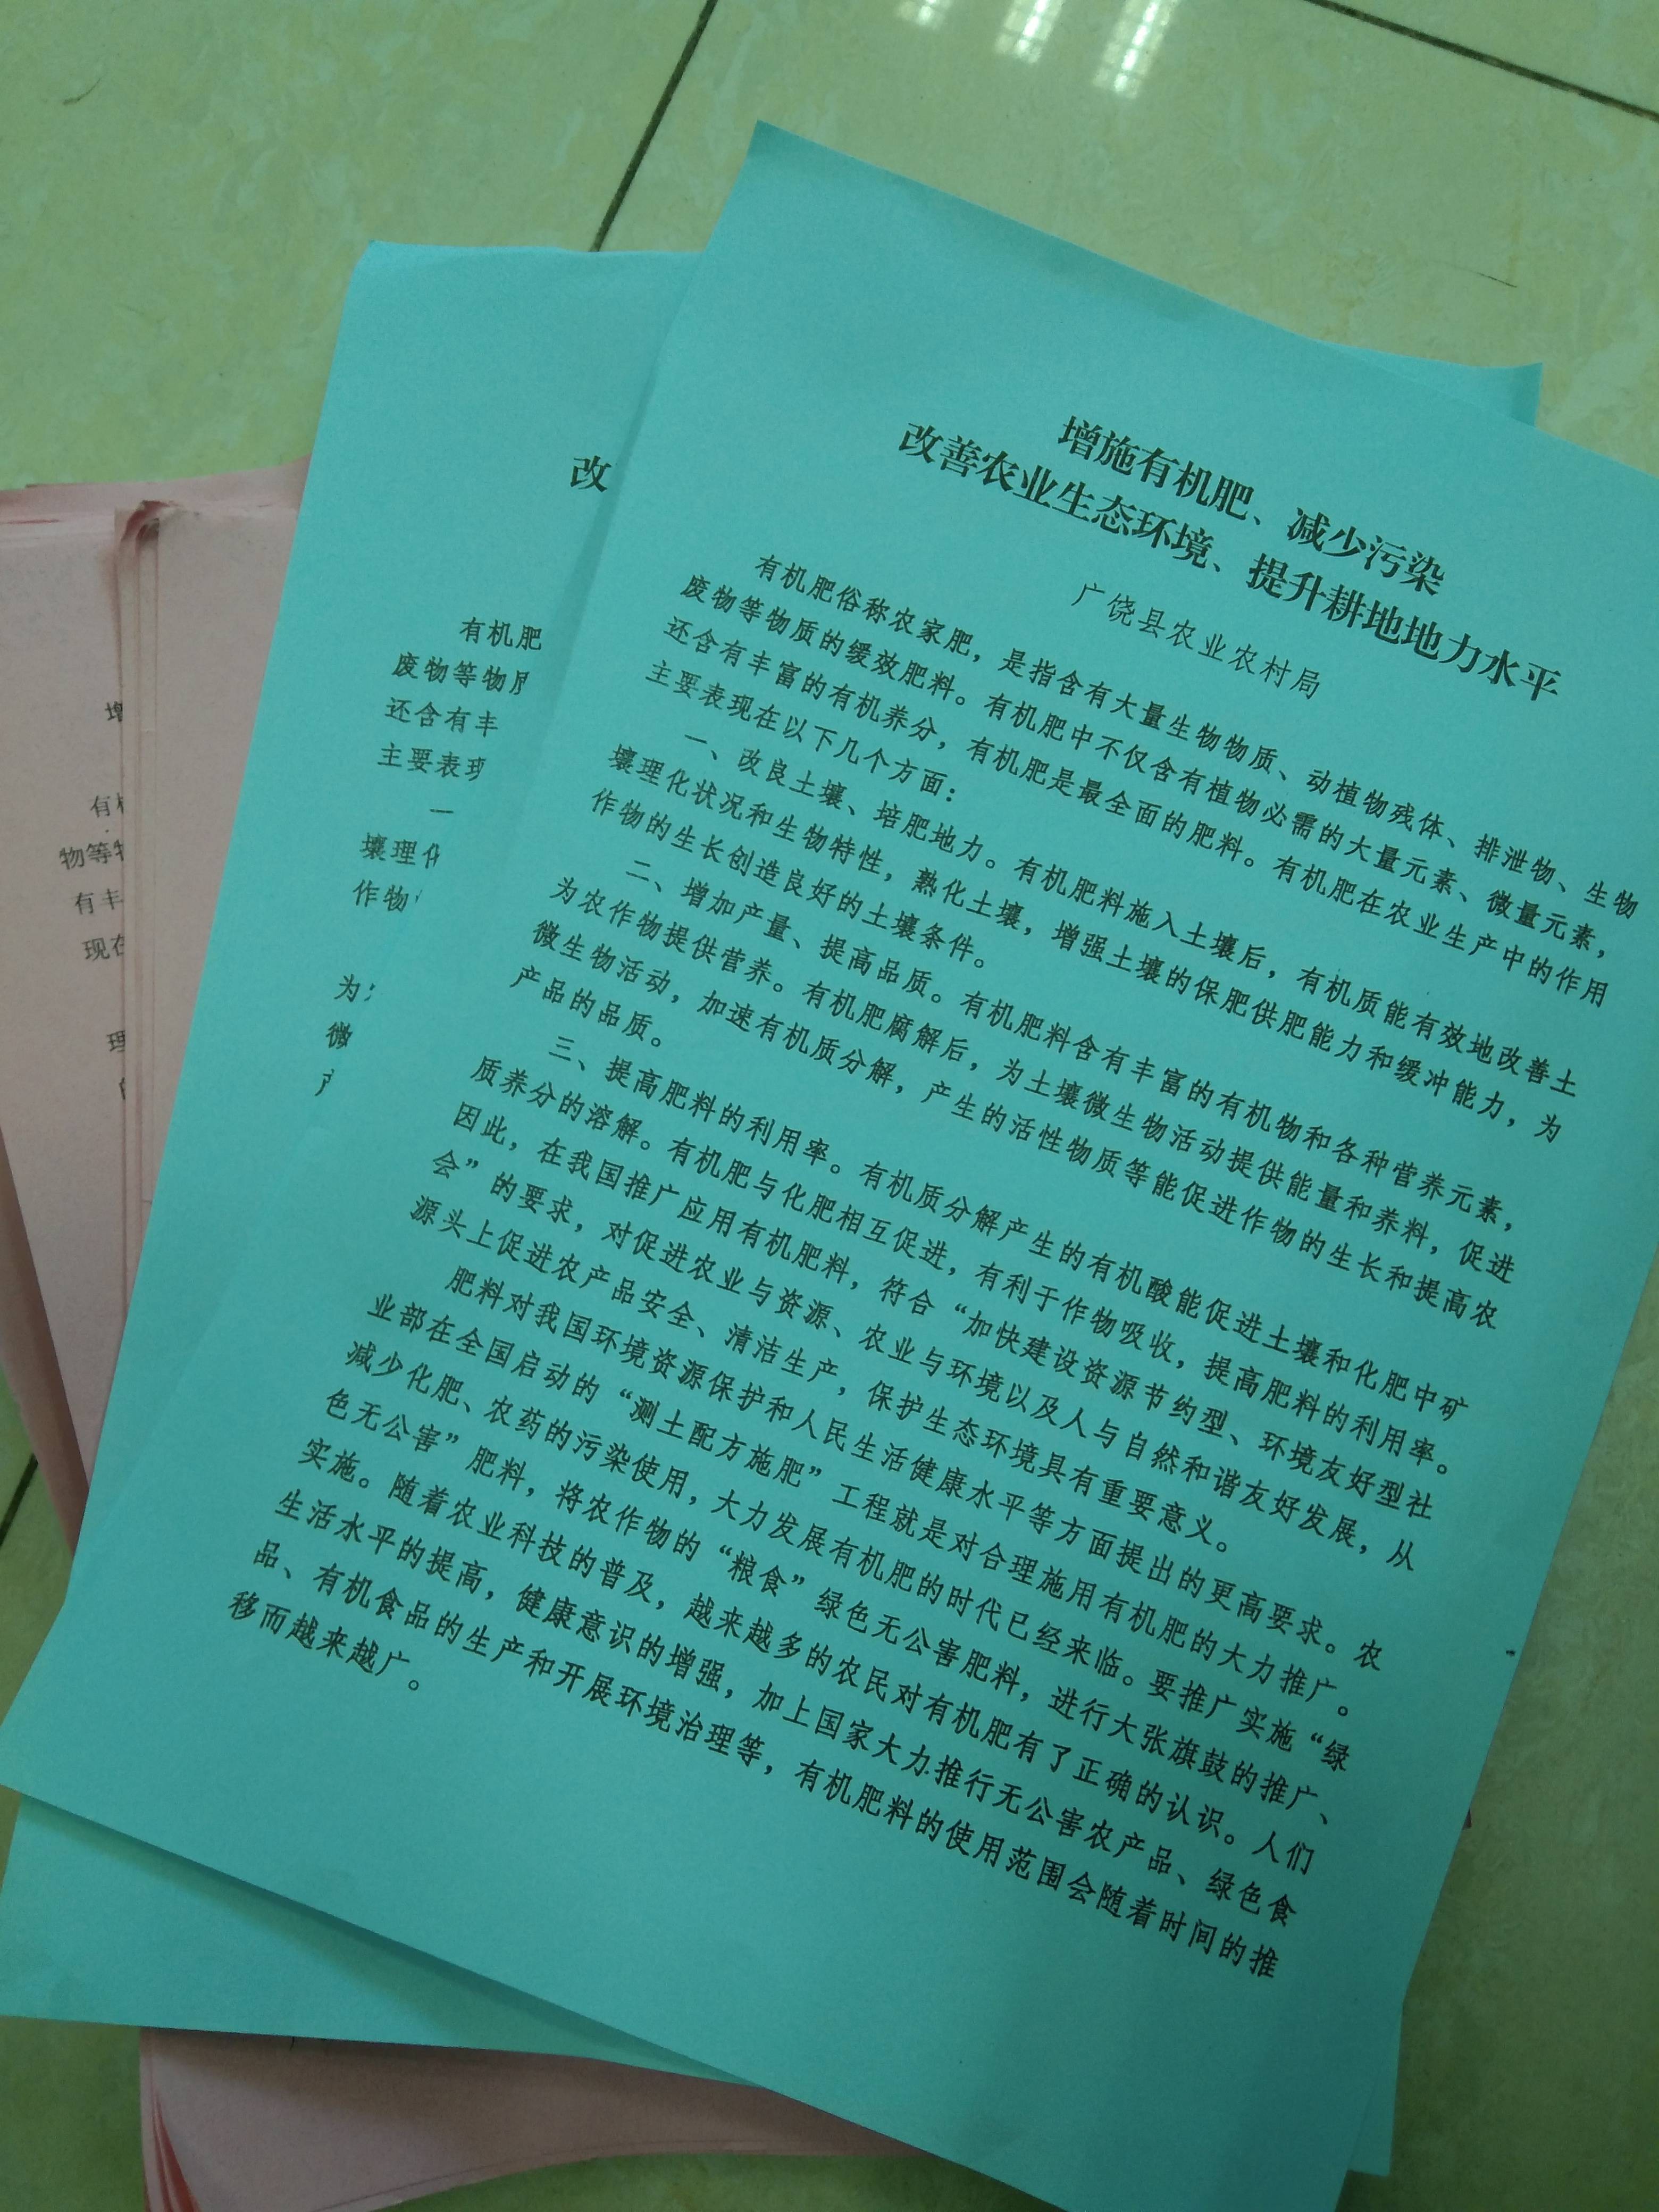 增施有机肥、减少污染
改善农业生态环境、提升耕地地力水平
广饶县农业农村局
有机肥俗称农家肥，是指含有大量生物物质、动植物残体、排泄物、生物
废物等物质的缓效肥料。有机肥中不仅含有植物必需的大量元素、微量元素，
还含有丰富的有机养分，有机肥是最全面的肥料。有机肥在农业生产中的作用
主要表现在以下几个方面：
一、改良土壤、培肥地力。有机肥料施入土壤后，有机质能有效地改善土
壤理化状况和生物特性，熟化土壤，增强土壤的保肥供肥能力和缓冲能力，为
作物的生长创造良好的土壤条件。
二、增加产量、提高品质。有机肥料含有丰富的有机物和各种营养元素，
为农作物提供营养。有机肥腐解后，为土壤微生物活动提供能量和养料，促进
微生物活动，加速有机质分解，产生的活性物质等能促进作物的生长和提高农
产品的品质。
三、提高肥料的利用率。有机质分解产生的有机酸能促进土壤和化肥中矿
质养分的溶解。有机肥与化肥相互促进，有利于作物吸收，提高肥料的利用率。
因此，在我国推广应用有机肥料，符合“加快建设资源节约型、环境友好型社
会”的要求，对促进农业与资源、农业与环境以及人与自然和谐友好发展，从
源头上促进农产品安全、清洁生产，保护生态环境具有重要意义。
肥料对我国环境资源保护和人民生活健康水平等方面提出的更高要求。农
业部在全国启动的“测土配方施肥”工程就是对合理施用有机肥的大力推广。
减少化肥、农药的污染使用，大力发展有机肥的时代已经来临。要推广实施“绿
色无公害”肥料，将农作物的“粮食”绿色无公害肥料，进行大张旗鼓的推广、
实施。随着农业科技的普及，越来越多的农民对有机肥有了正确的认识。人们
生活水平的提高，健康意识的增强，加上国家大力推行无公害农产品、绿色食
品、有机食品的生产和开展环境治理等，有机肥料的使用范围会随着时间的推
移而越来越广。
改
有机肥
废物等物
还含有丰
主要表现
一
壤理化
作物
为
微
产
增
有机
物等物
有丰
现在
理